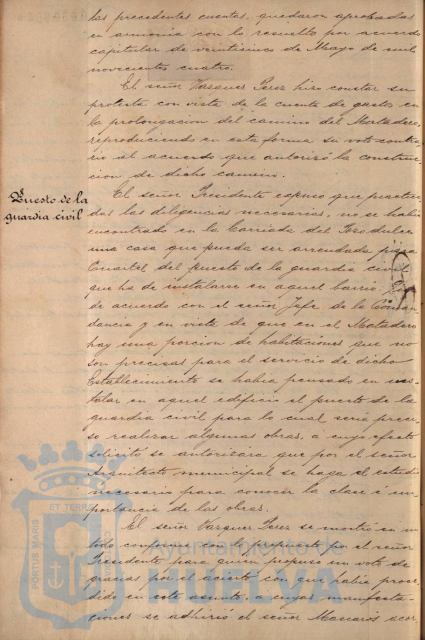 las precedentes cuentas, quedaron aprobadas
en armonia con lo resuelto por acuerdo
capitular de veintiseis de Mayo de mil
novecientos cuatro.
El señor Vazquez Perez hizo constar su
protesta con vista de la cuenta de gastos en
la prolongacion del camino del Matadero,
reproduciendo en esta forma su voto contra-
rio al acuerdo que autorizó la construc-
cion de dicho camino.
Puesto de la
guardia civil
El señor Presidente expuso que practica-
das las diligencias necesarias, no se habia
encontrado en la barriada del
una casa que pueda ser arrendada para
Cuartel del puesto de la guardia civil
que ha de instalarse en aquel barrio
de acuerdo con el señor Jefe de la Coman-
dancia y en vista de que en el Matadero
hay una porcion de habitaciones que no
son precisas para el servicio de dicho
Establecimiento se habia pensado en ins-
talar en aquel edificio el puesto de la
guardia civil para lo cual seria preci-
so realizar algunas obras, a cuyo efecto
solicitó se autorizara que por el señor
Arquitecto municipal se haga el estudio
necesario para conocer la clase é im-
portancia de las obras.
El señor Vazquez Perez se mostró en un
todo conforme con lo propuesto por el señor
Presidente para quien propuso un voto de
gracias por el acierto con que habia proce-
dido en este asunto, a cuyas manifesta-
ciones se adhirió el señor Mascarós
PORTUS MARIS
ET TERRAE
Ayuntamiento de
HUELVA